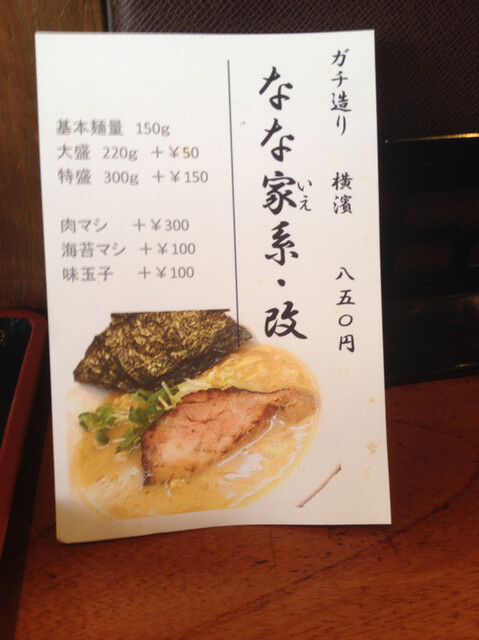 ガチ造り 横濱 八五〇円
なな家系・改
いえ
基本麺量 150g
大盛 220g +¥50
特盛 300g +¥150
肉マシ +¥300
海苔マシ +¥100
味玉子 +¥100